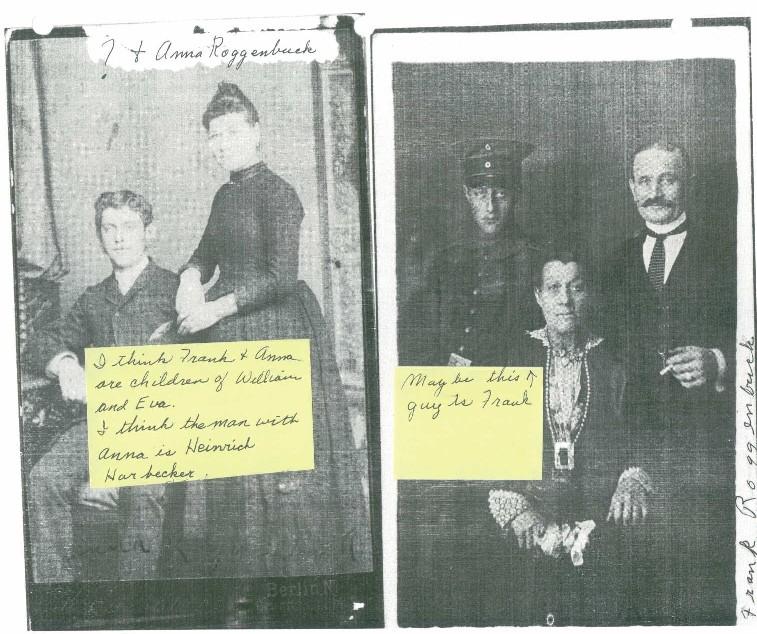 ? + Anna Roggenbuck
I think Frank + Anna
are children of William
and Eva.
I think the man with
Anna is Heinrich
Harbecker.
Berlin N
May be this ↗
guy is Frank
Frank Roggenbuck